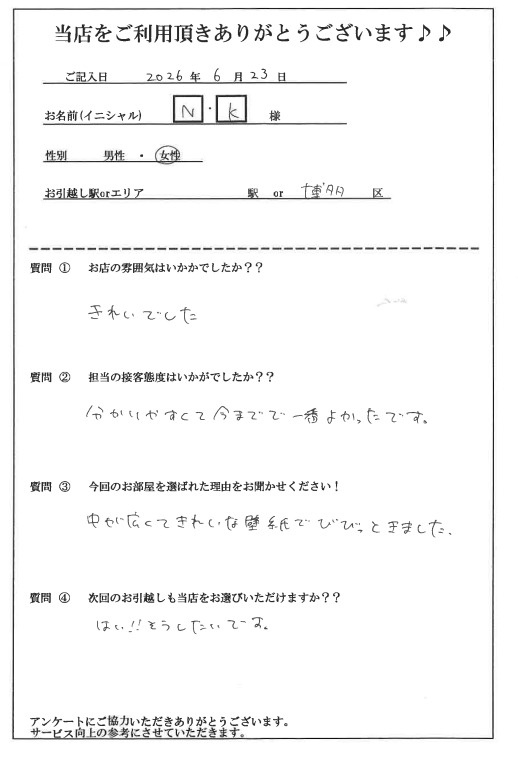 当店をご利用頂きありがとうございます♪♪
ご記入日 2026年 6月23日
お名前(イニシャル) N・K 様
性別 男性 ・ 女性
お引越し駅orエリア 駅 or 博多 区
質問 ① お店の雰囲気はいかかでしたか？？
きれいでした
質問 ② 担当の接客態度はいかがでしたか？？
分かりやすくて今までで一番よかったです。
質問 ③ 今回のお部屋を選ばれた理由をお聞かせください！
中が広くてきれいな壁紙でびびっときました.
質問 ④ 次回のお引越しも当店をお選びいただけますか？？
はい!!そうしたいです。
アンケートにご協力いただきありがとうございます。
サービス向上の参考にさせていただきます。